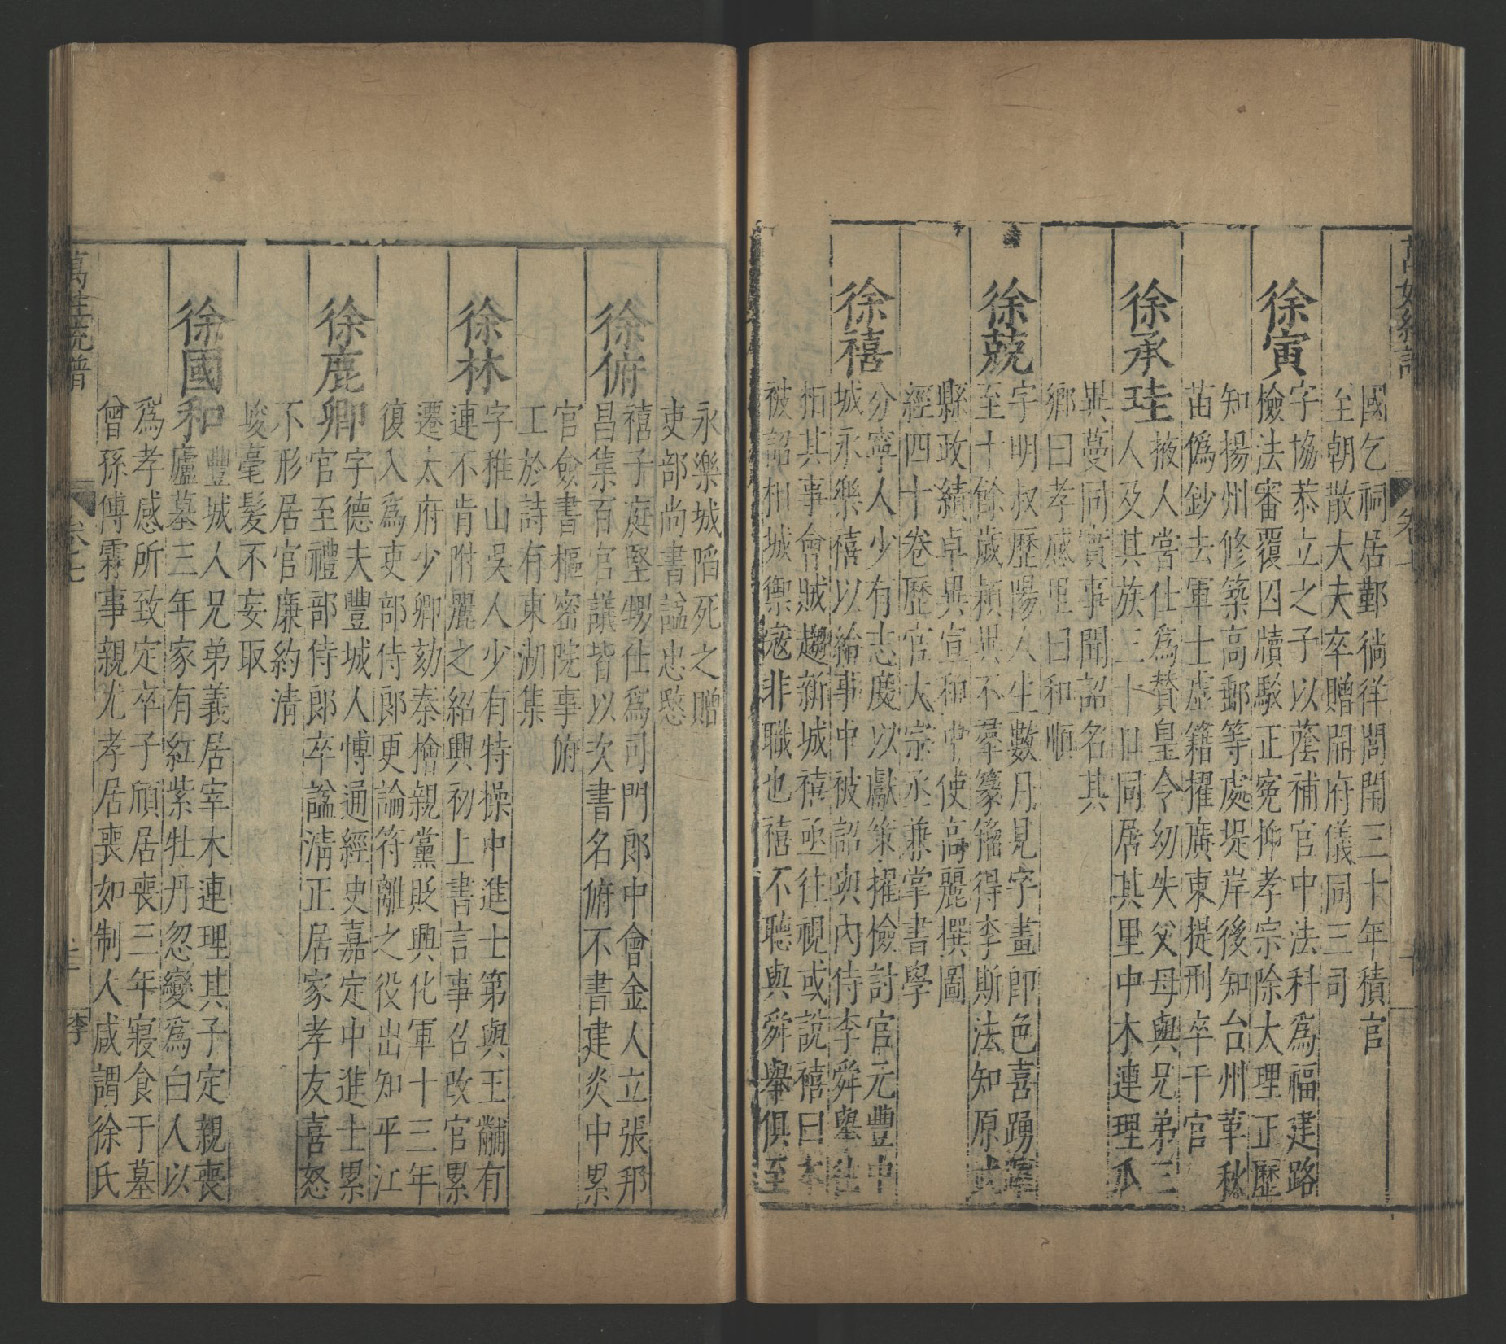 國乞祠居鄞徜徉閭閈三十年積官
至朝散大夫卒贈開府儀同三司
徐寅
字協恭立之子以蔭補官中法科爲福建路
檢法審覆囚牘駁正寃抑孝宗除大理正歷
知揚州修築高郵等處堤岸後知台州革秋
苗僞鈔去軍士虛籍擢廣東提刑卒于官
徐承珪
掖人嘗仕爲贊皇令幼失父母與兄弟三
人及其族三十口同居其里中木連理瓜
異蔓同實事聞詔名其
鄉曰孝感里曰和順
徐兢
字明叔歷陽人生數月見字畫即色喜踴躍
至十餘歲穎異不羣篆籀得李斯法知原武
縣政績卓異宣和中使高麗撰圖
經四十卷歷官大宗丞兼掌書學
徐禧
分寧人少有志度以獻策擢檢討官元豐中
城永樂禧以給事中被詔與內侍李舜舉往
拓其事會賊趨新城禧亟往視或說禧曰本
被詔相城禦寇非職也禧不聽與舜舉俱至
永樂城陷死之贈
吏部尚書諡忠愍
徐俯
禧子庭堅甥仕爲司門郎中會金人立張邦
昌集百官議皆以次書名俯不書建炎中累
官僉書樞密院事俯
工於詩有東湖集
徐林
字稚山吳人少有特操中進士第與王黼有
連不肯附麗之紹興初上書言事召改官累
遷太府少卿劾秦檜親黨貶興化軍十三年
復入爲吏部侍郎更論符離之役出知平江
徐鹿卿
字德夫豐城人愽通經史嘉定中進士累
官至禮部侍郎卒諡清正居家孝友喜怒
不形居官廉約清
峻毫髮不妄取
徐國和
豐城人兄弟義居宰木連理其子定親喪
廬墓三年家有紅紫牡丹忽變爲白人以
爲孝感所致定卒子頎居喪三年寢食于墓
曾孫傅霖事親尤孝居喪如制人咸謂徐氏
萬姓統譜
卷七
李